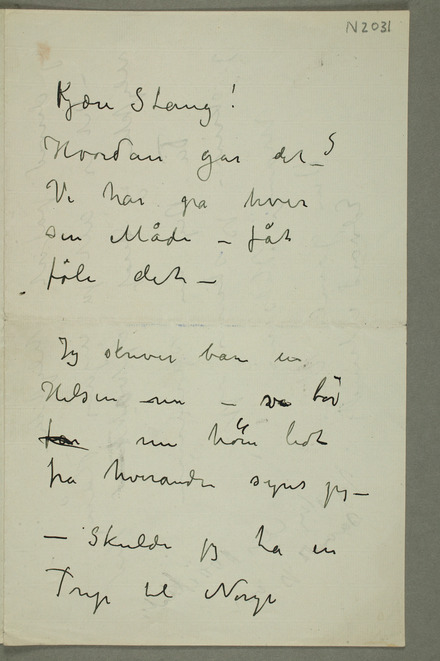 N2031
Kjære Stang!
Hvordan går det_?
Vi har på hver
sin Måde – fåt
föle det –
Jeg skriver bare en
Hilsen – vi bör
nu höre lidt
fra hverandre synes jeg –
– Skulde jeg ta en
Trip til Norge